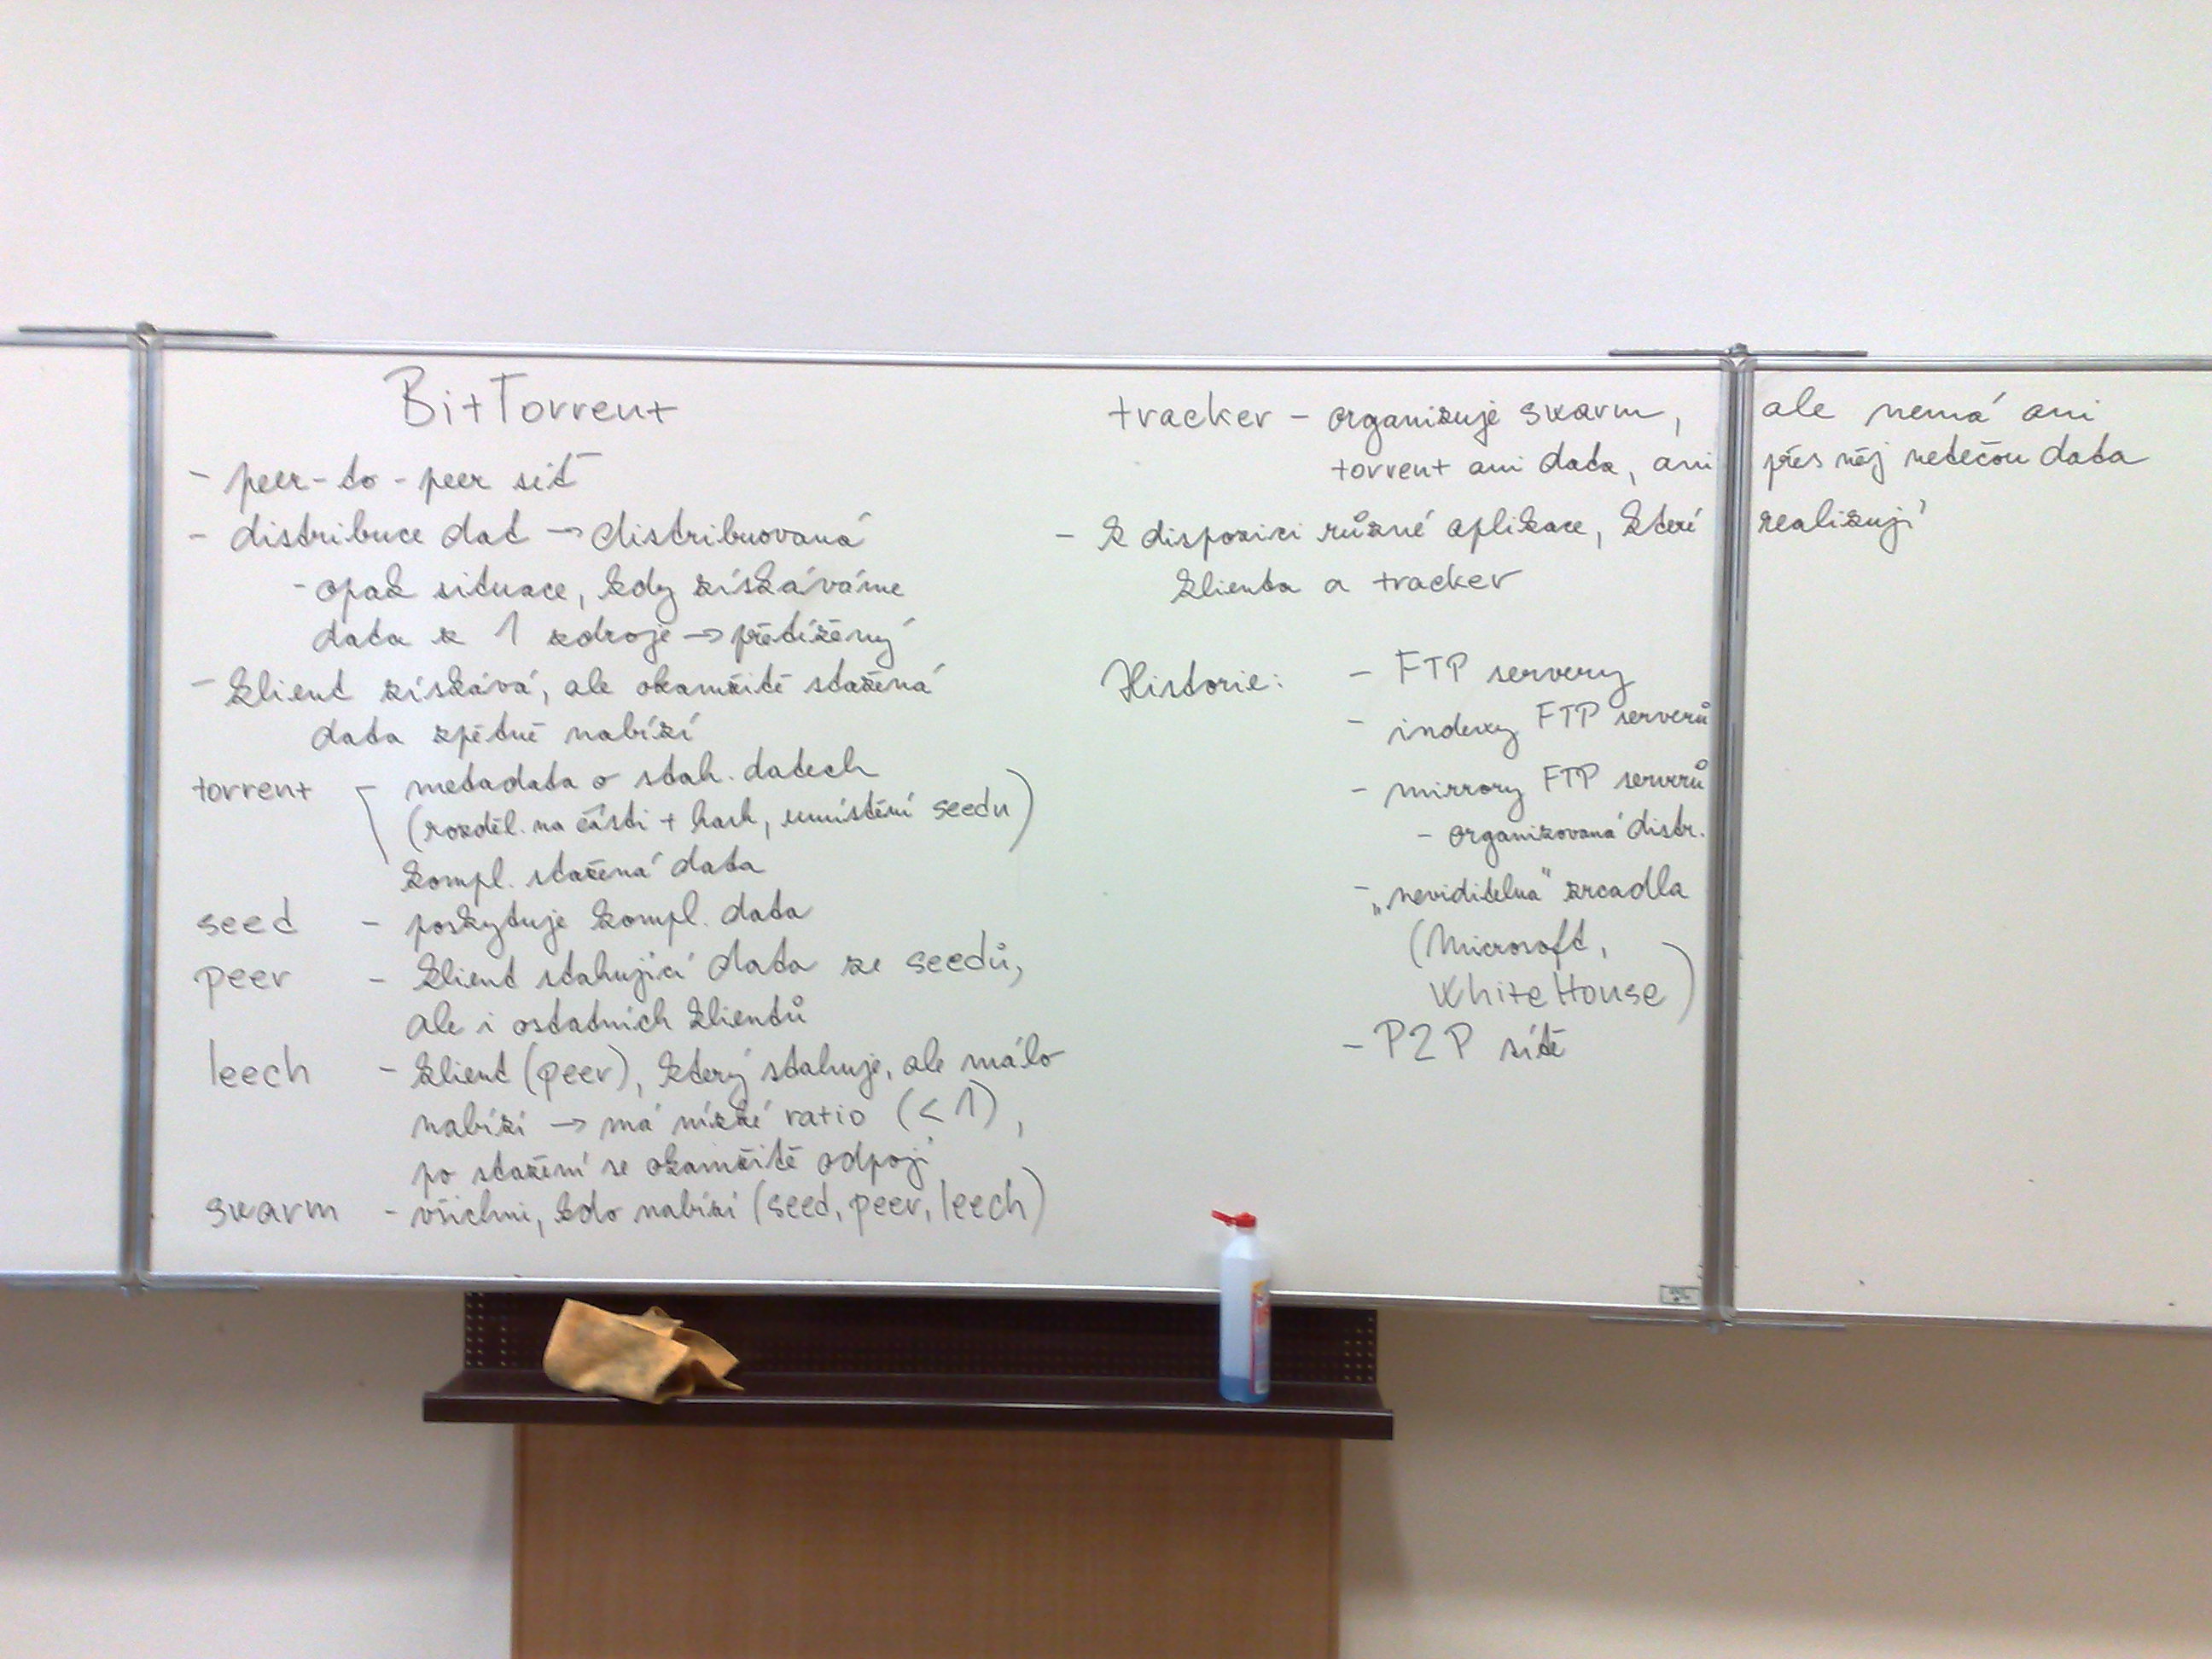 BitTorrent
- peer-to-peer síť
- distribuce dat → distribuovaná
- opak situace, kdy získáváme
data z 1 zdroje → přetížený
- klient získává, ale okamžitě stažená
data zpětně nabízí
torrent - metadata o stah. datech
(rozděl. na části + hash, umístění seedu)
kompl. stažená data
seed - poskytuje kompl. data
peer - klient stahující data ze seedů,
ale i ostatních klientů
leech - klient (peer), který stahuje, ale málo
nabízí → má nízké ratio (< 1),
po stažení se okamžitě odpojí
swarm - všichni, kdo nabízí (seed, peer, leech)
tracker - organizuje swarm, ale nemá ani
torrent ani data, ani přes něj netečou data
- k dispozici různé aplikace, které realizují
klienta a tracker
Historie: - FTP servery
- indexy FTP serverů
- mirrory FTP serverů
- organizovaná distr.
- „neviditelná" zrcadla
(Microsoft,
WhiteHouse)
- P2P sítě